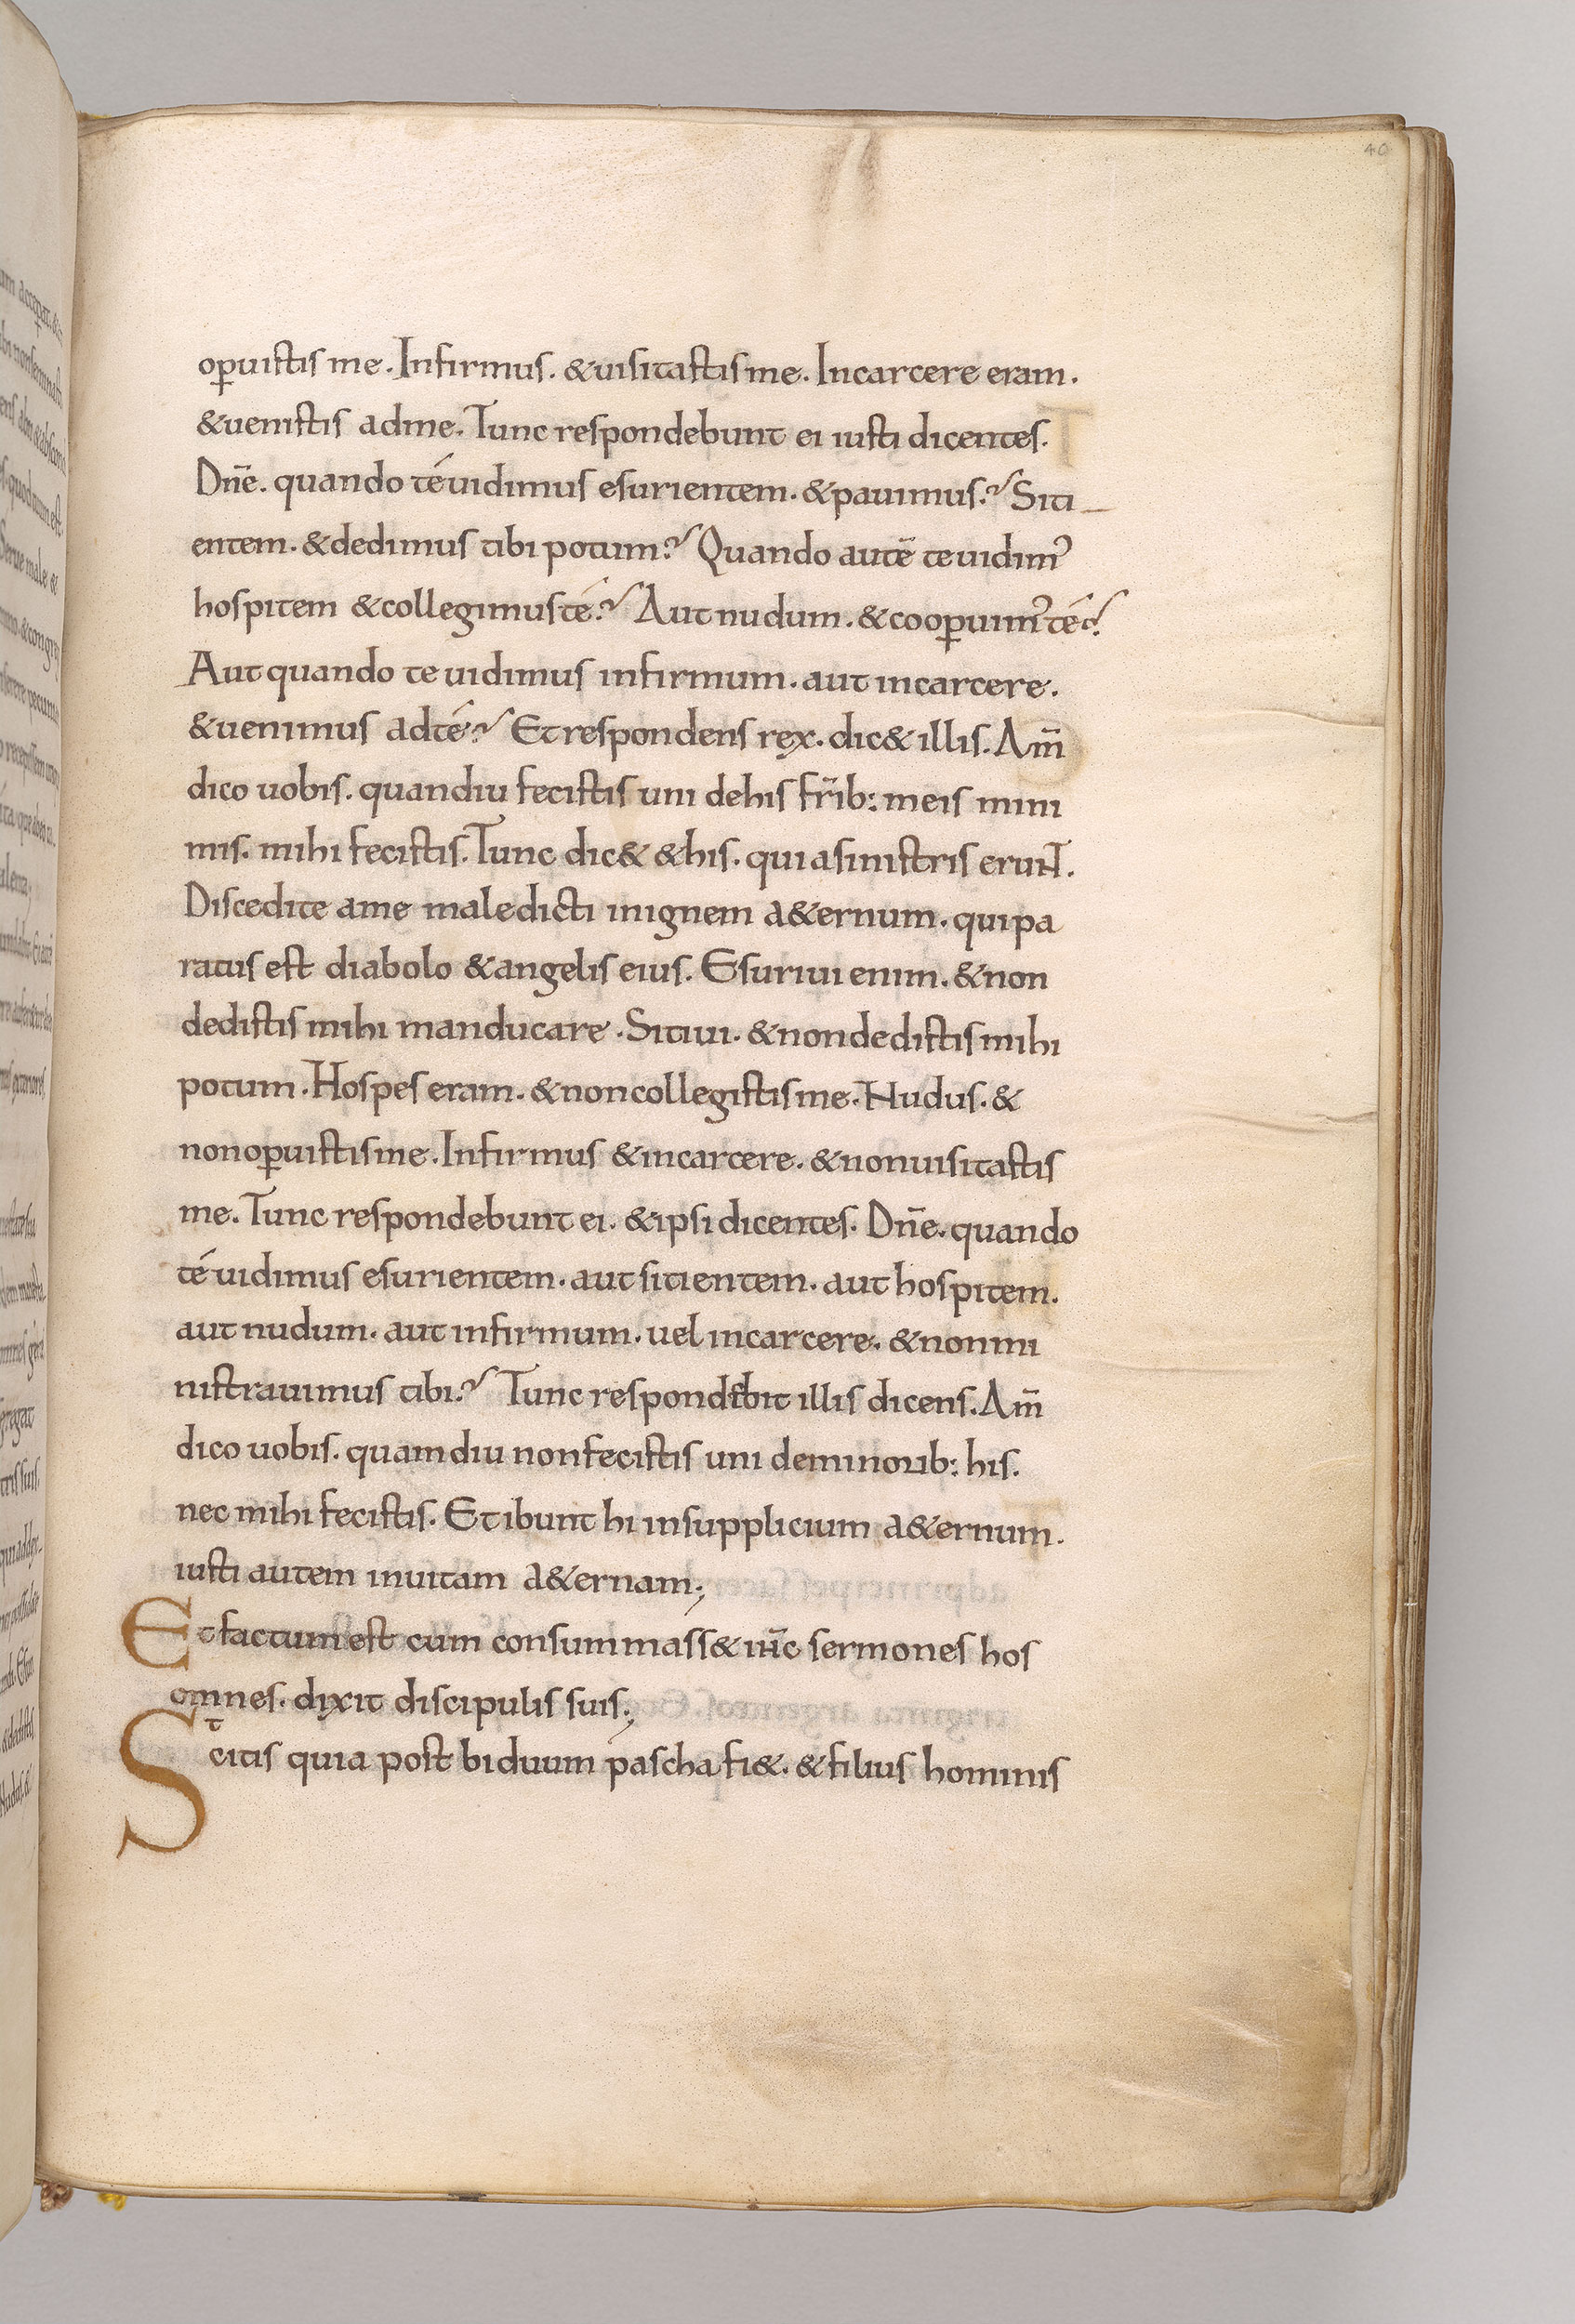 40
op̲uistis me. Infirmus. &uisitastis me. Incarcere eram.
&uenistis adme. Tunc respondebunt ei iusti dicentes.
Dñe. quando té uidimus esurientem. &pauimus? Siti_
entem. &dedimus tibi potum? Quando autē te uidimꝰ
hospitem &collegimus té? Aut nudum. &coop̲uimꝰ té?
Aut quando te uidimus infirmum. aut incarcere.
&uenimus adté? Et respondens rex. dic& illis. Am̄
dico uobis. quandiu fecistis uni dehis fr̄ib: meis mini
mis. mihi fecistis. Tunc dic& &his. qui asinistris erunt.
Discedite ame maledicti inignem a&ernum. qui pa
ratus est diabolo &angelis eius. Esuriui enim. &non
dedistis mihi manducare. Sitiui. &nondedistis mihi
potum. Hospes eram. &noncollegistis me. Nudus. &
nonop̲uistis me. Infirmus &incarcere. &nonuisitastis
me. Tunc respondebunt ei. &ipsi dicentes. Dñe. quando
té uidimus esurientem. aut sitientem. aut hospitem.
aut nudum. aut infirmum. uel incarcere. &nonmi
nistrauimus tibi? Tunc respondebit illis dicens. Am̄
dico uobis. quamdiu nonfecistis uni deminorib: his.
nec mihi fecistis. Et ibunt hi insupplicium a&ernum.
iusti autem inuitam a&ernam;
Et factum est cum consummass& ih̄c sermones hos
omnes. dixit discipulis suis;
Scitis quia post biduum pascha fi&. &filius hominis